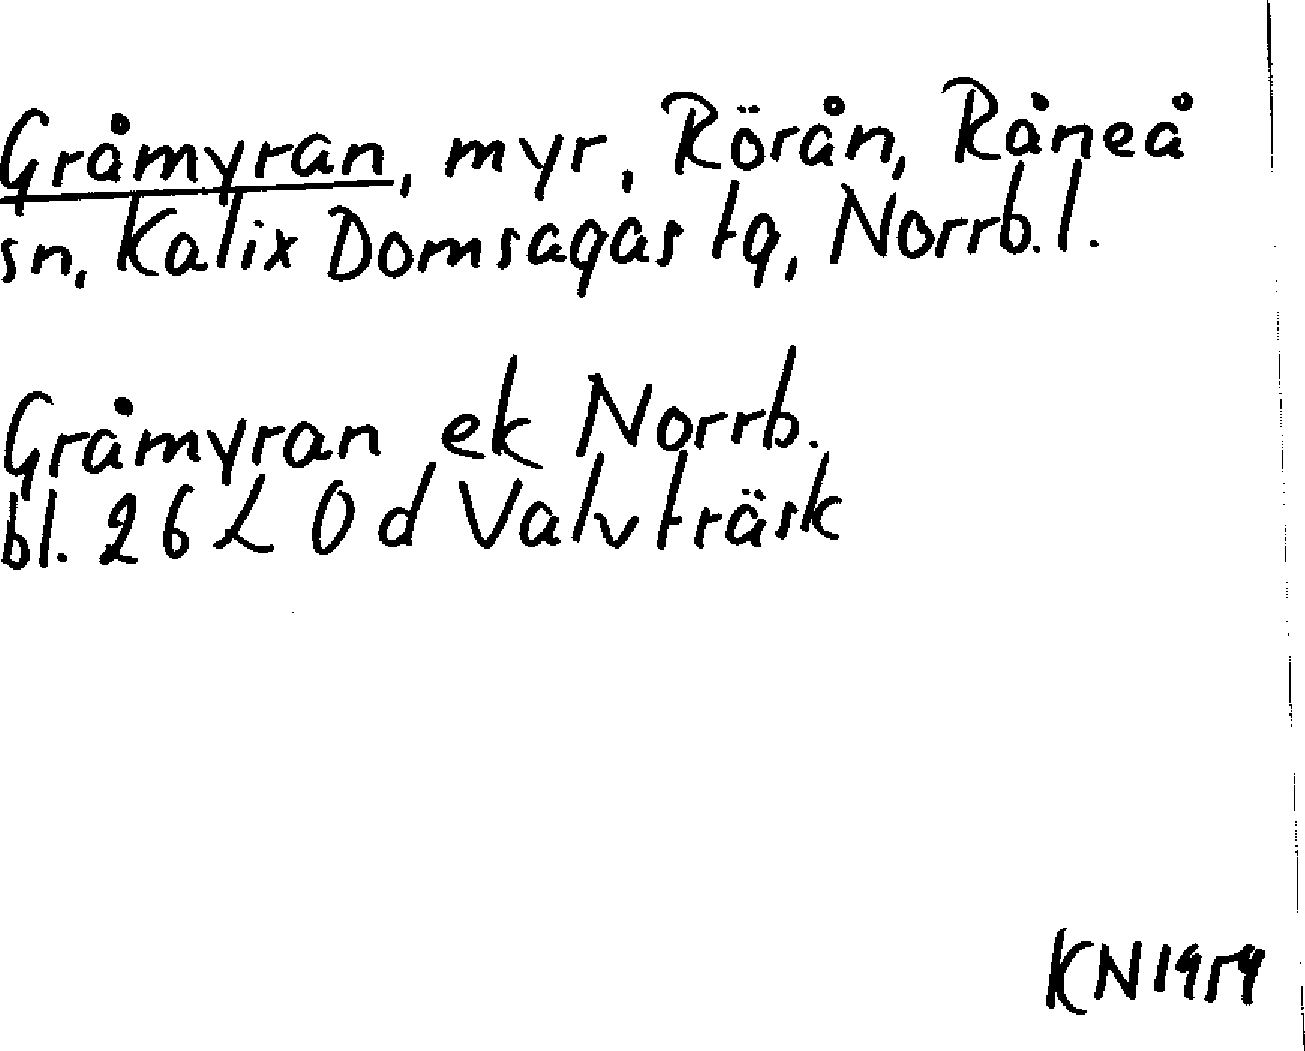 Gråmyran, myr, Rörån, Råneå
sn, Kalix Domsagas tg, Norrb. l.
Gråmyran ek Norrb.
bl. 26 L 0 d Valvträsk
KN 1959